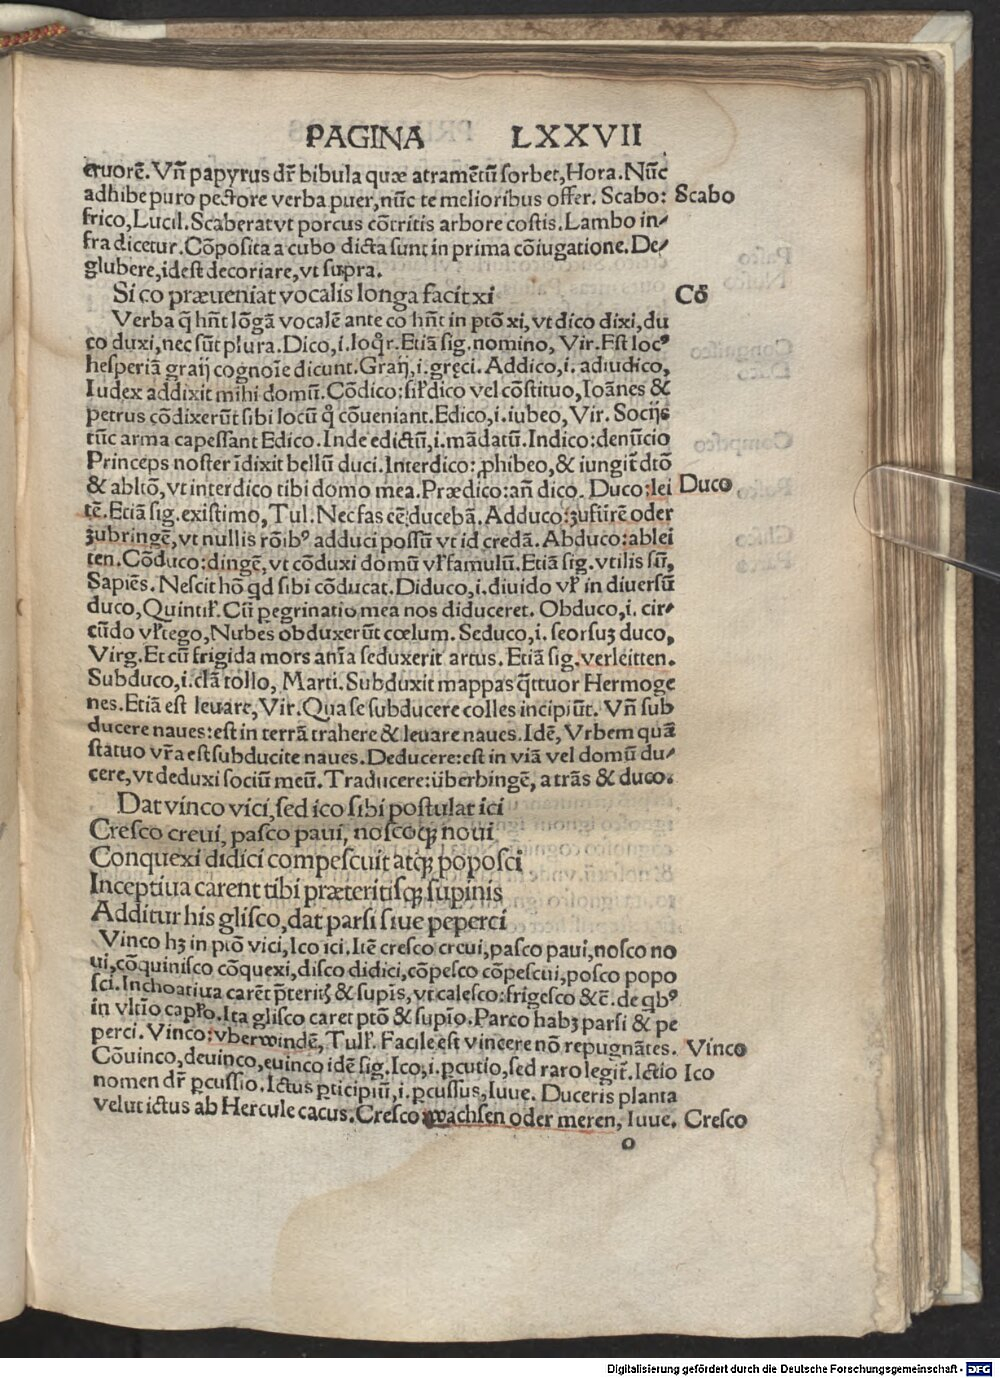 PAGINA LXXVII
cruorē. Vn̄ papyrus dr̄ bibula quæ atramētū sorbet, Hora. Nūc
adhibe puro pectore verba puer, nūc te melioribus offer. Scabo: Scabo
frico, Lucil. Scaberat vt porcus cōtritis arbore costis. Lambo in⸗
fra dicetur. Cōposita a cubo dicta sunt in prima cōiugatione. De⸗
glubere, idest decoriare, vt supra.
Si co præueniat vocalis longa facit xi Cō
Verba q̄ hn̄t lōgā vocalē ante co hn̄t in ptō xi, vt dico dixi, du
co duxi, nec sūt plura. Dico, i. loq̄r. Etiā sig. nomino, Vir. Est locꝰ
hesperiā graij cognoīe dicunt. Graij, i. gręci. Addico, i. adiudico,
Iudex addixit mihi domū. Cōdico: sil̕ dico vel cōstituo, Ioānes &
petrus cōdixerūt sibi locū q̄ cōueniant. Edico, i. iubeo, Vir. Socijs
tūc arma capessant Edico. Inde edictū, i. mādatū. Indico: denūcio
Princeps noster īdixit bellū duci. Interdico: ꝓhibeo, & iungit̄ dtō
& abltō, vt interdico tibi domo mea. Prædico: an̄ dico. Duco: lei Duco
tē. Etiā sig. existimo, Tul. Nec fas eē ducebā. Adduco: zufürē oder
zubringē, vt nullis rōibꝰ adduci possū vt id credā. Abduco: ablei
ten. Cōduco: dingē, vt cōduxi domū vl̕ famulū. Etiā sig. vtilis sū,
Sapiēs. Nescit hō qd sibi cōducat. Diduco, i. diuido vl̕ in diuersū
duco, Quintil̕. Cū ꝑegrinatio mea nos diduceret. Obduco, i. cir⸗
cūdo vl̕ tego, Nubes obduxerūt cœlum. Seduco, i. seorsuꝫ duco,
Virg. Et cū frigida mors anīa seduxerit artus. Etiā sig. verleitten.
Subduco, i. clā tollo, Marti. Subduxit mappas q̄ttuor Hermoge
nes. Etiā est leuare, Vir. Qua se subducere colles incipiūt. Vn̄ sub
ducere naues: est in terrā trahere & leuare naues. Idē, Vrbem quā
statuo vr̄a est subducite naues. Deducere: est in viā vel domū du⸗
cere, vt deduxi sociū meū. Traducere: überbingē, a trās & duco.
Dat vinco vici, sed ico sibi postulat ici
Cresco creui, pasco paui, noscoqꝫ noui
Conquexi didici compescuit atqꝫ poposci
Inceptiua carent tibi præteritisqꝫ supinis
Additur his glisco, dat parsi siue peperci
Vinco hꝫ in ptō vici, Ico ici. Itē cresco creui, pasco paui, nosco no
ui, cōquinisco cōquexi, disco didici, cōpesco cōpescui, posco popo
sci. Inchoatiua carēt p̄teritꝭ & supīs, vt calesco: frigesco &c̄. de qbꝰ
in vltīo capl̕o. Ita glisco caret ptō & supīo. Parco habꝫ parsi & pe
perci. Vinco: vberwindē, Tull̕. Facile est vincere nō repugnātes. Vinco
Cōuinco, deuinco, euinco idē sig. Ico, i. ꝑcutio, sed raro legit̄. Ictio Ico
nomen dr̄ ꝑcussio. Ictus ꝑticipiū, i. ꝑcussus, Iuue. Duceris planta
velut ictus ab Hercule cacus. Cresco: wachsen oder meren, Iuue. Cresco
o
Digitalisierung gefördert durch die Deutsche Forschungsgemeinschaft - DFG